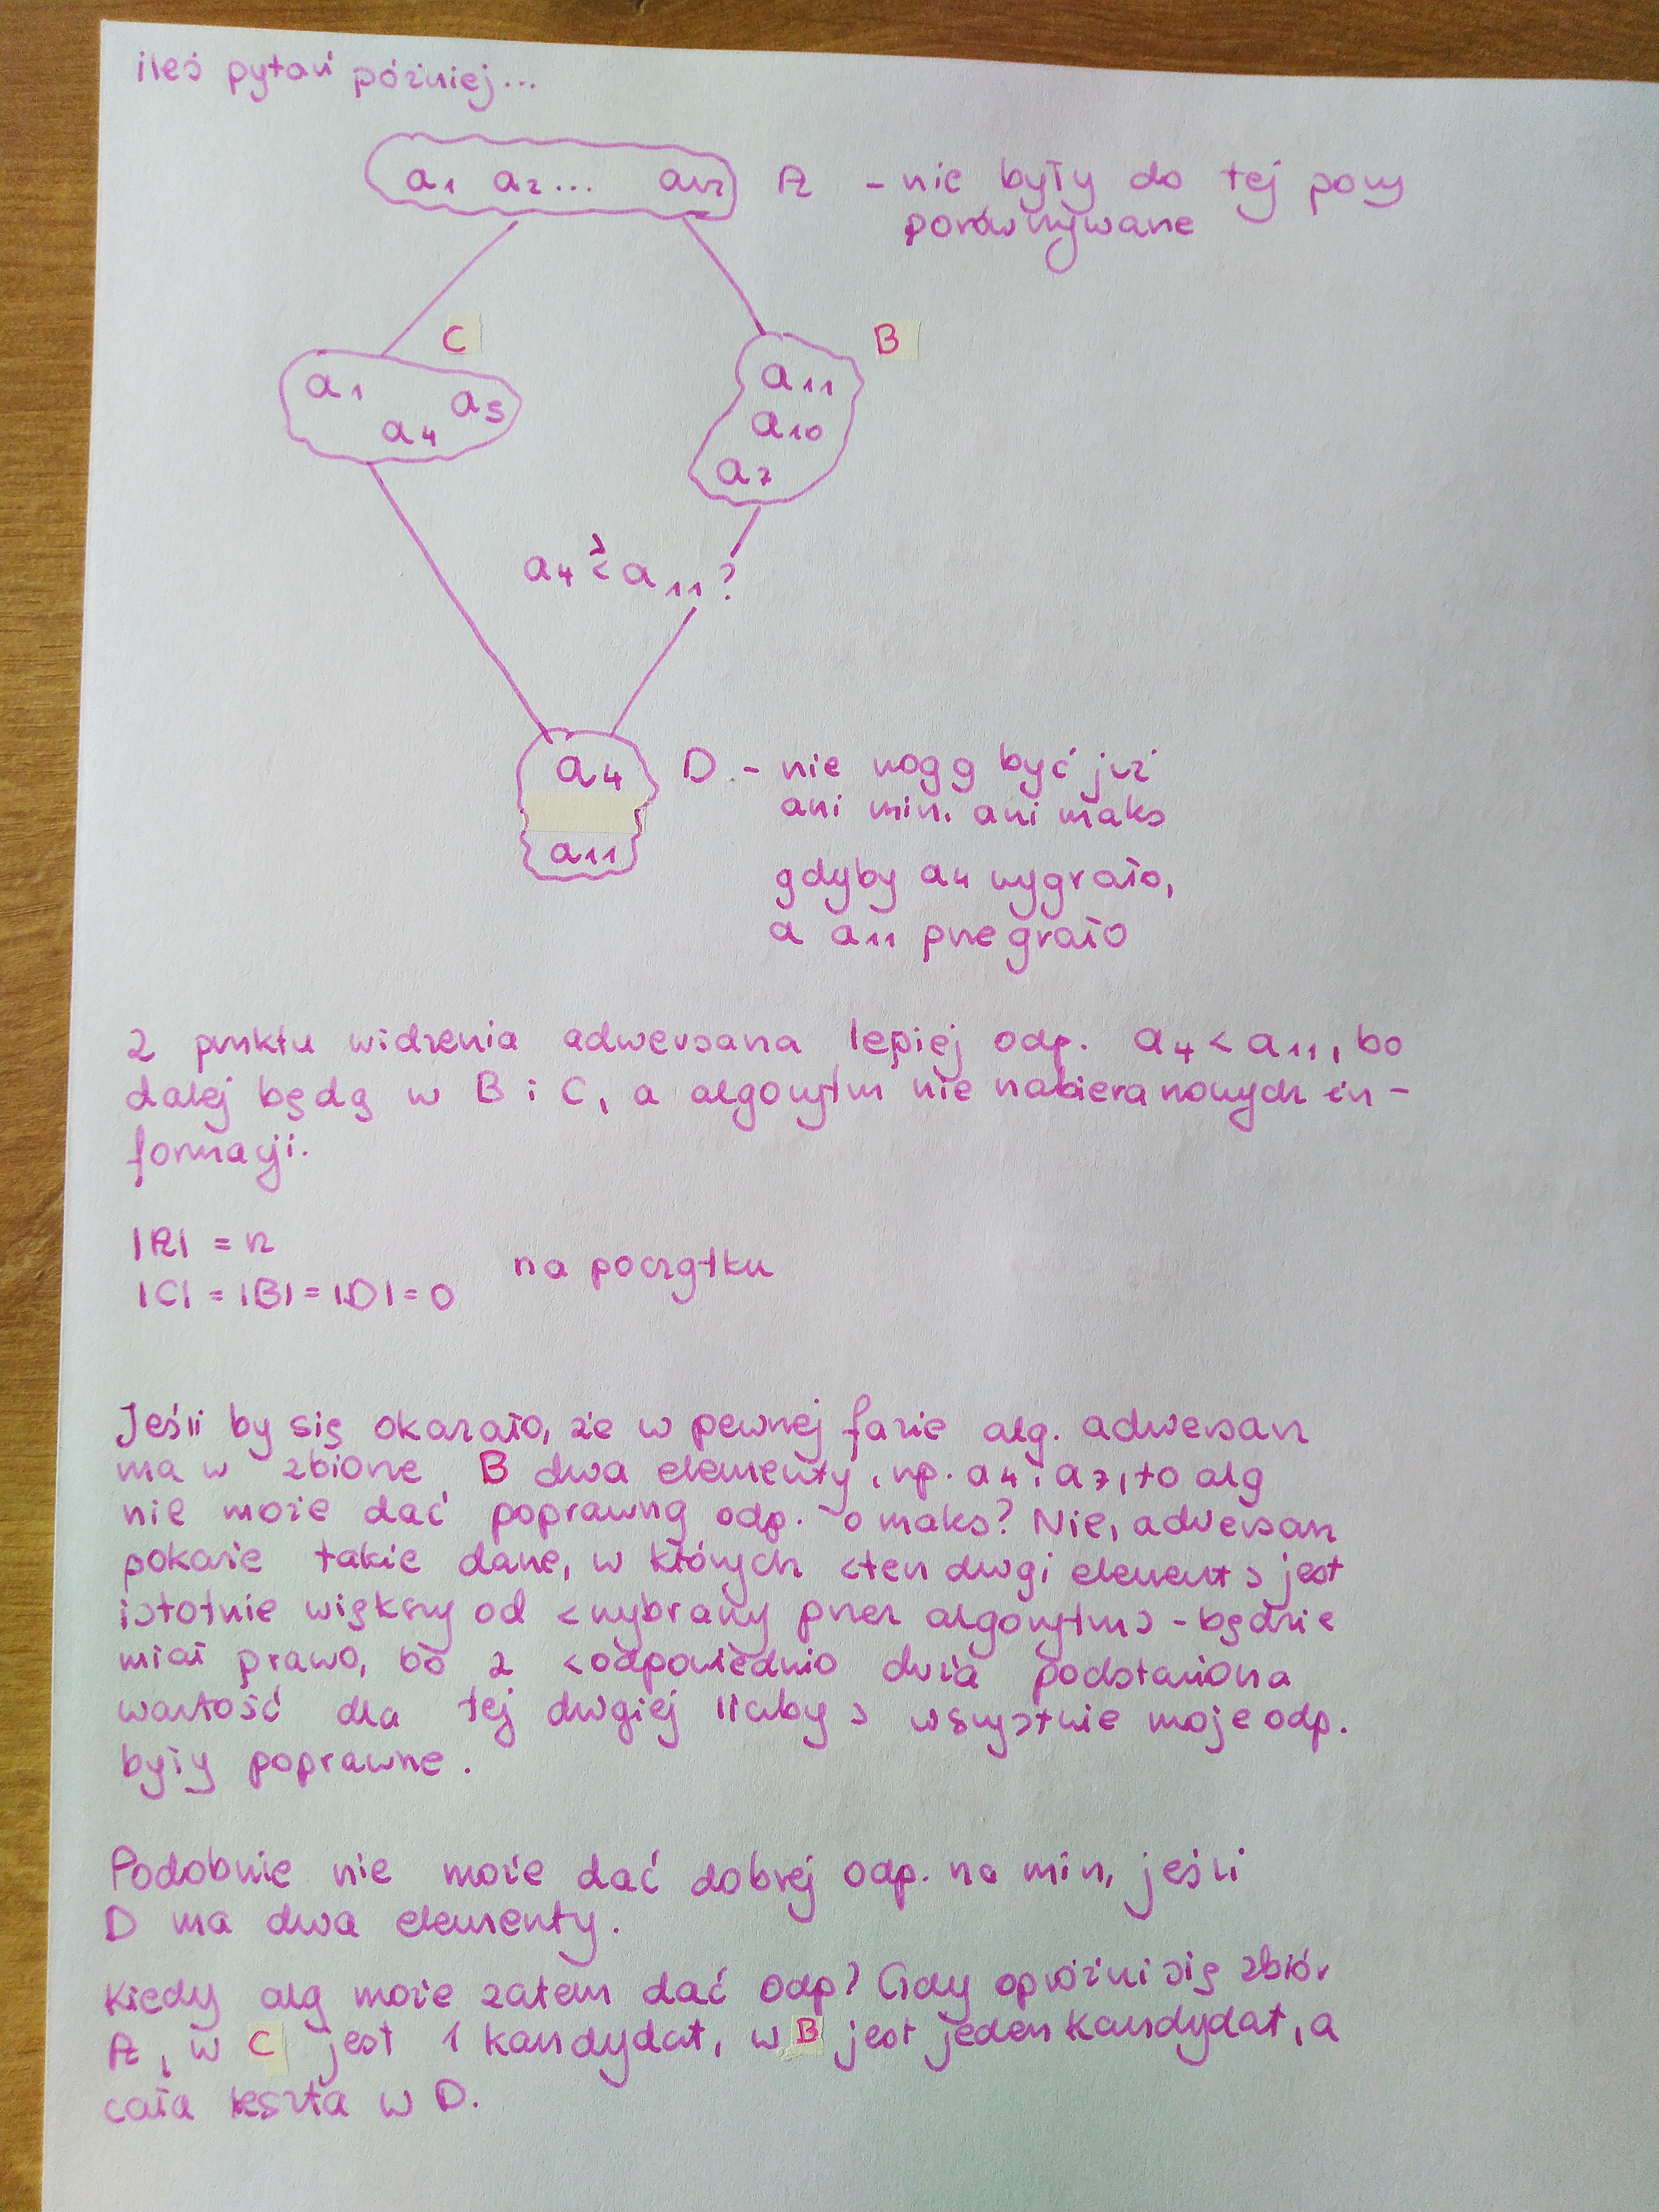 iłeś pytań później...
a1 a2... an A - nie były do tej pory
porównywane
C
B
a1 a5
a4
a11
a10
a7
a4 <> a11?
a4
a11
D - nie mogą być już
ani min. ani maks
gdyby a4 wygrało,
a a11 przegrało
z punktu widzenia adwersarza lepiej odp. a4 < a11, bo
dalej będą w B i C, a algorytm nie nabiera nowych in-
formacji.
|A| = n
|C| = |B| = |D| = 0
na początku
Jeśli by się okazało, że w pewnej fazie alg. adwersarz
ma w zbiorze B dwa elementy, np. a4 i a7, to alg
nie może dać poprawną odp. o maks? Nie, adwersarz
pokaże takie dane, w których <ten drugi element> jest
istotnie większy od <wybrany przez algorytm> - będzie
miał prawo, bo z <odpowiednio dużą podstawioną
wartość dla tej drugiej liczby> wszystkie moje odp.
były poprawne.
Podobnie nie może dać dobrej odp. na min, jeśli
D ma dwa elementy.
Kiedy alg może zatem dać odp? Gdy opróżni się zbiór
A, w C jest 1 kandydat, w B jest jeden kandydat, a
cała reszta w D.